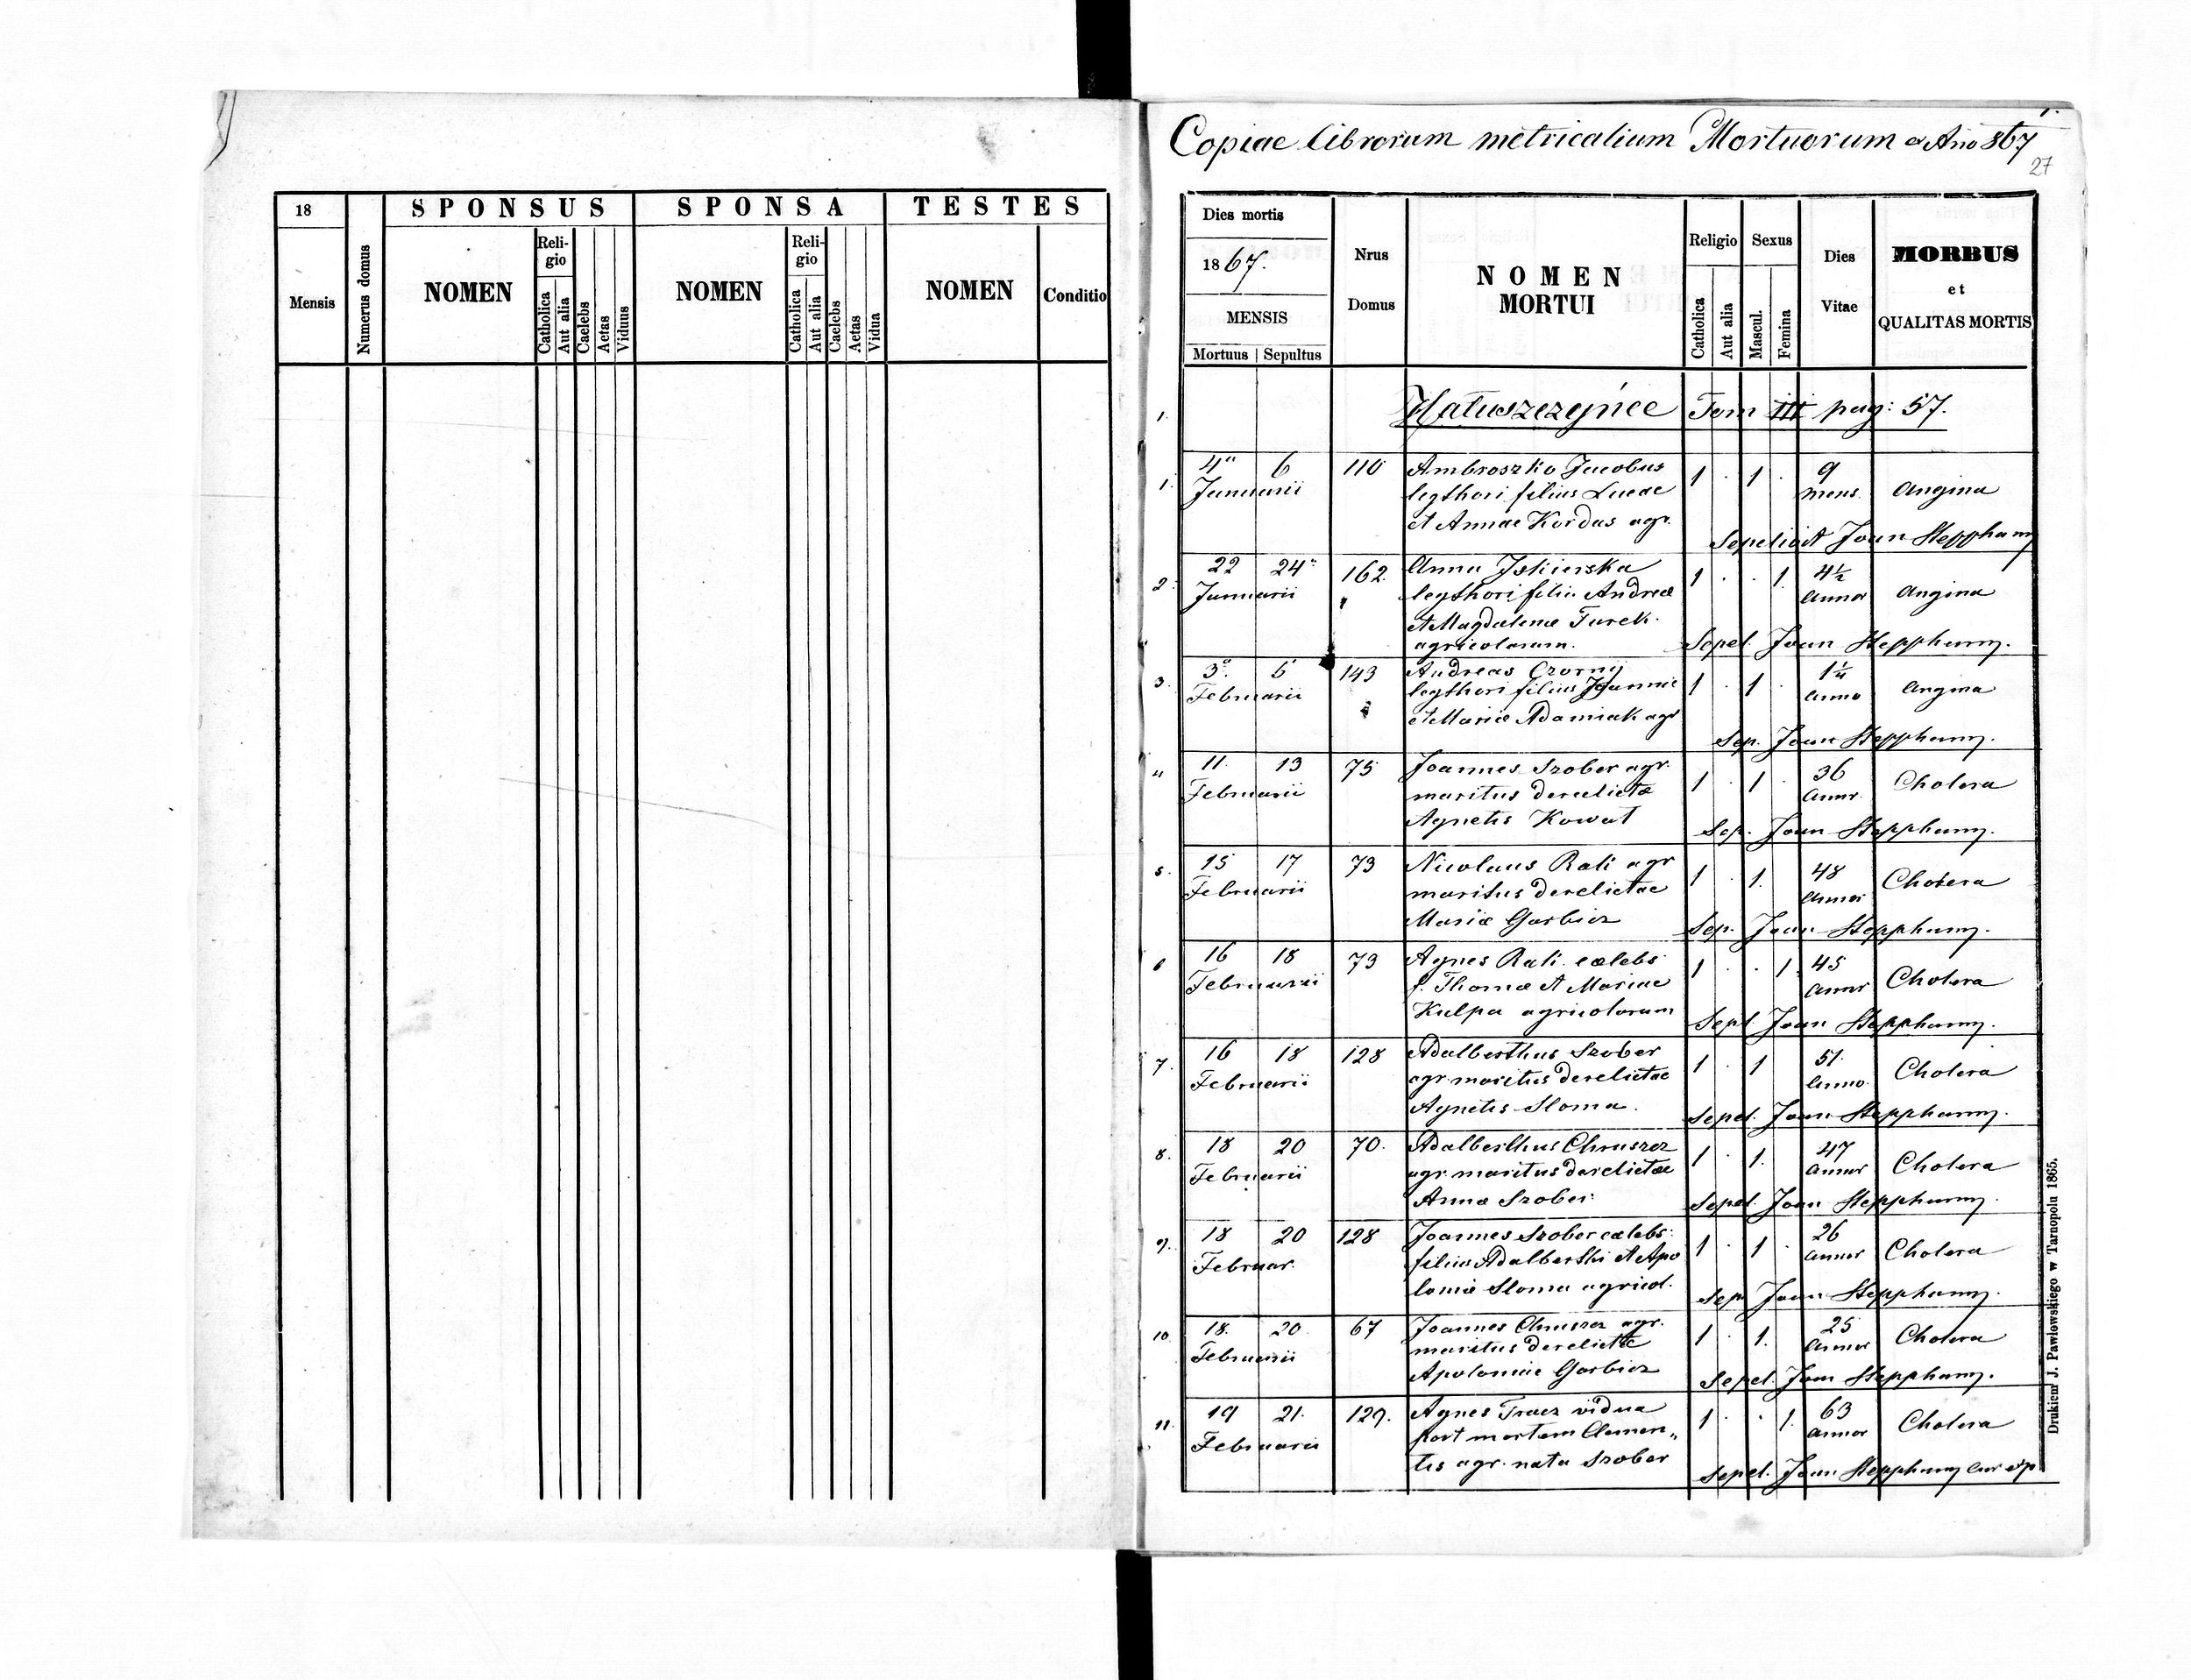 18
SPONSUS
SPONSA
TESTES
Mensis
Numerus domus
NOMEN
Religio
Catholica
Aut alia
Caelebs
Aetas
Viduus
NOMEN
Religio
Catholica
Aut alia
Caelebs
Aetas
Vidua
NOMEN
Conditio
1.
Copiae librorum metricalium Mortuorum a Ano 867
27
Dies mortis
1867.
MENSIS
Mortuus Sepultus
Nrus
Domus
NOMEN
MORTUI
Religio
Catholica
Aut alia
Sexus
Mascul.
Femina
Dies
Vitae
MORBUS
et
QUALITAS MORTIS
1. Hałuszczyńce Tom III pag: 57.
1. 4 6 110 Ambroszko Jacobus 1 . 1 . 9
Januarii legthori filius Lucae mens. Angina
et Annae Kordas agr.
Sepelivit Joan Stepphany
2. 22 24 162. Anna Iskierska 1 . . 1. 4½
Januarii legthori filia Andreae Annor Angina
et Magdalenae Turek.
agricolarum. Sepel. Joan Stepphany.
3. 3. 5 143 Andreas Czorny 1 . 1 . 1¼
Februarii legthori filius Joannis anno Angina
et Mariae Adamiak agr
Sep. Joan Stepphany.
4 11. 13 75 Joannes Szober agr. 1 . 1 . 36
Februarii maritus derelictae Annor. Cholera
Agnetis Kowal Sep. Joan Stepphany.
5. 15 17 73 Nicolaus Rali agr 1 . 1. 48
Februarii maritus derelictae Annor Cholera
Mariae Garbicz Sep. Joan Stepphany.
6 16 18 73 Agnes Rali caelebs 1 . . 1. 45
Februarii f. Thomae et Mariae Annor Cholera
Kulpa agricolarum Sepel Joan Stepphany.
7. 16 18 128 Adalberthus Szober 1 . 1 51.
Februarii agr. maritus derelictae Anno. Cholera
Agnetis Sloma. Sepel. Joan Stepphany.
8. 18 20 70. Adalberthus Chruszcz 1 . 1. 47
Februarii agr. maritus derelictae Annor Cholera
Annae Szober. Sepel. Joan Stepphany.
9. 18 20 128 Joannes Szober caelebs. 1 . 1 . 26
Februar. filius Adalberthi et Apo Annor Cholera
loniae Sloma agricol. Sep. Joan Stepphany.
10. 18. 20. 67 Joannes Chruszcz agr. 1 . 1. 25
Februarii maritus derelictae Annor Cholera
Apoloniae Garbicz Sepel. Joan Stepphany.
11. 19 21. 129. Agnes Tracz vidua 1 . . 1. 63
Februarii post mortem Clemen„ Annor Cholera
tis agr. nata Szober Sepel. Joan Stepphany
Drukiem J. Pawłowskiego w Tarnopolu 1865.